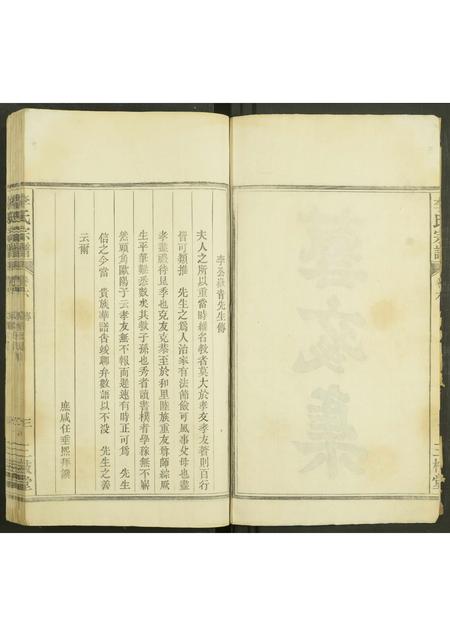 李公嶽青先生傳
夫人之所以重當時維名教者莫大於孝友孝友著則百行
皆可類推 先生之爲人治家有法簡儉可風事父母也盡
孝盡誠待昆季也克友克恭至於和里睦族重友尊師綜厥
生平筆難悉數矣其教子孫也秀者讀書樸者學稼無不嶄
然頭角歐陽子云孝友無不報而遲速有時正可爲 先生
信之今當 貴族華譜告竣聊弁數語以不没 先生之善
云爾
庶咸任垂熙拜讚
李氏宗譜
傳
三
三槐堂
李氏宗譜
三槐堂